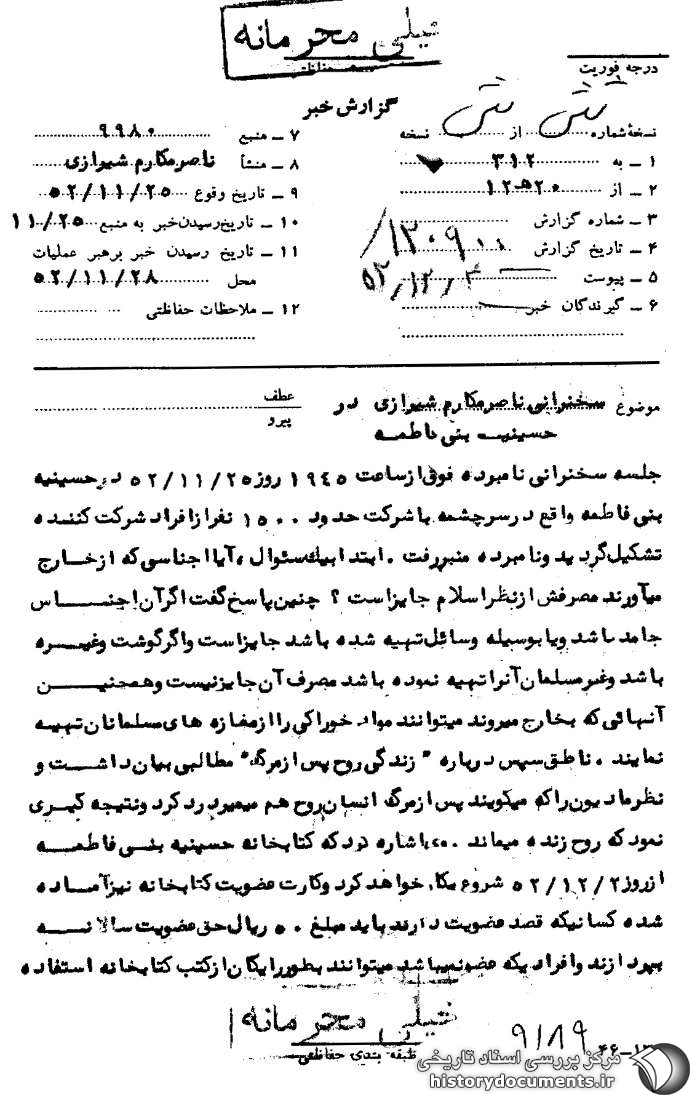 خیلی محرمانه
درجه فوریت
گزارش خبر
نسخهٔ شماره از نسخه
۱ ــ به ۳۱۲
۲ ــ از ۲۰ ﻫ ۱۲
۳ ــ شماره گزارش
۴ ــ تاریخ گزارش
۵ ــ پیوست
۶ ــ گیرندگان خبر
۷ ــ منبع ۹۹۸۰
۸ ــ منشأ ناصر مکارم شیرازی
۹ ــ تاریخ وقوع ۵۲/۱۱/۲۵
۱۰ ــ تاریخ رسیدن خبر به منبع ۱۱/۲۵
۱۱ ــ تاریخ رسیدن خبر برهبر عملیات
محل ۵۲/۱۱/۲۸
۱۲ ــ ملاحظات حفاظتی
موضوع سخنرانی ناصر مکارم شیرازی در
حسینیه بنی فاطمه
عطف
پیرو
جلسه سخنرانی نامبرده فوق از ساعت ۱۹۴۵ روز ۵۲/۱۱/۲۵ در حسینیه
بنی فاطمه واقع در سرچشمه با شرکت حدود ۱۵۰۰ نفر از افراد شرکت کننده
تشکیل گردید و نامبرده منبر رفت . ابتدا بیك سئوال ، آیا اجناسی که از خارج
میآورند مصرفش از نظر اسلام جایز است ؟ چنین پاسخ گفت اگر آن اجنـــاس
جامد باشد و یا بوسیله وسائل تهیه شده باشد جایز است و اگر گوشت و غیــره
باشد و غیر مسلمان آنرا تهیه نموده باشد مصرف آن جایز نیست و همچنیــن
آنهائی که بخارج میروند میتوانند مواد خوراکی را از مغازه های مسلمانان تهیــه
نمایند . ناطق سپس درباره " زندگی روح پس از مرگ " مطالبی بیان داشــت و
نظر مادیون را که میگویند پس از مرگ انسان روح هم میمیرد رد کرد و نتیجه گیری
نمود که روح زنده میماند . اشاره کرد که کتابخانه حسینیه بنــی فاطمــه
از روز ۵۲/۱۲/۲ شروع بکار خواهد کرد و کارت عضویت کتابخانه نیز آمــاده
شده کسانیکه قصد عضویت دارند باید مبلغ ۵۰ ریال حق عضویت سالانــه
بپردازند و افرادیکه عضو نمیباشد میتوانند بطور رایگان از کتب کتابخانه استفاده
خیلی محرمانه
طبقه بندی حفاظتی
۹۱۸۹
مرکز بررسی اسناد تاریخی
historydocuments.ir